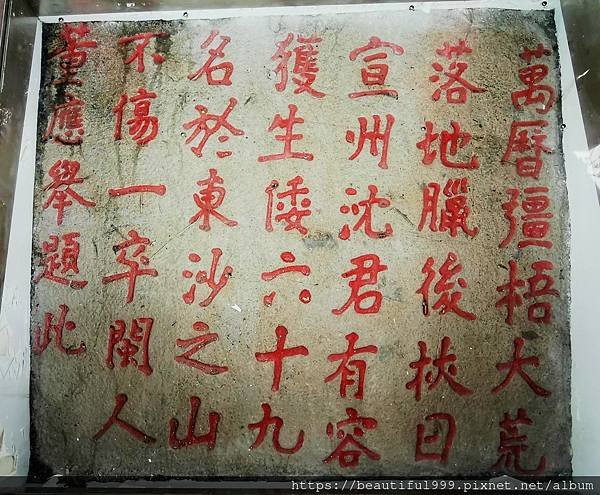 萬曆彊梧大荒
落地臘後挾日
宣州沈君有容
獲生倭六十九
名於東沙之山
不傷一卒閩人
董應舉題此
https://beautiful999.pixnet.net/album